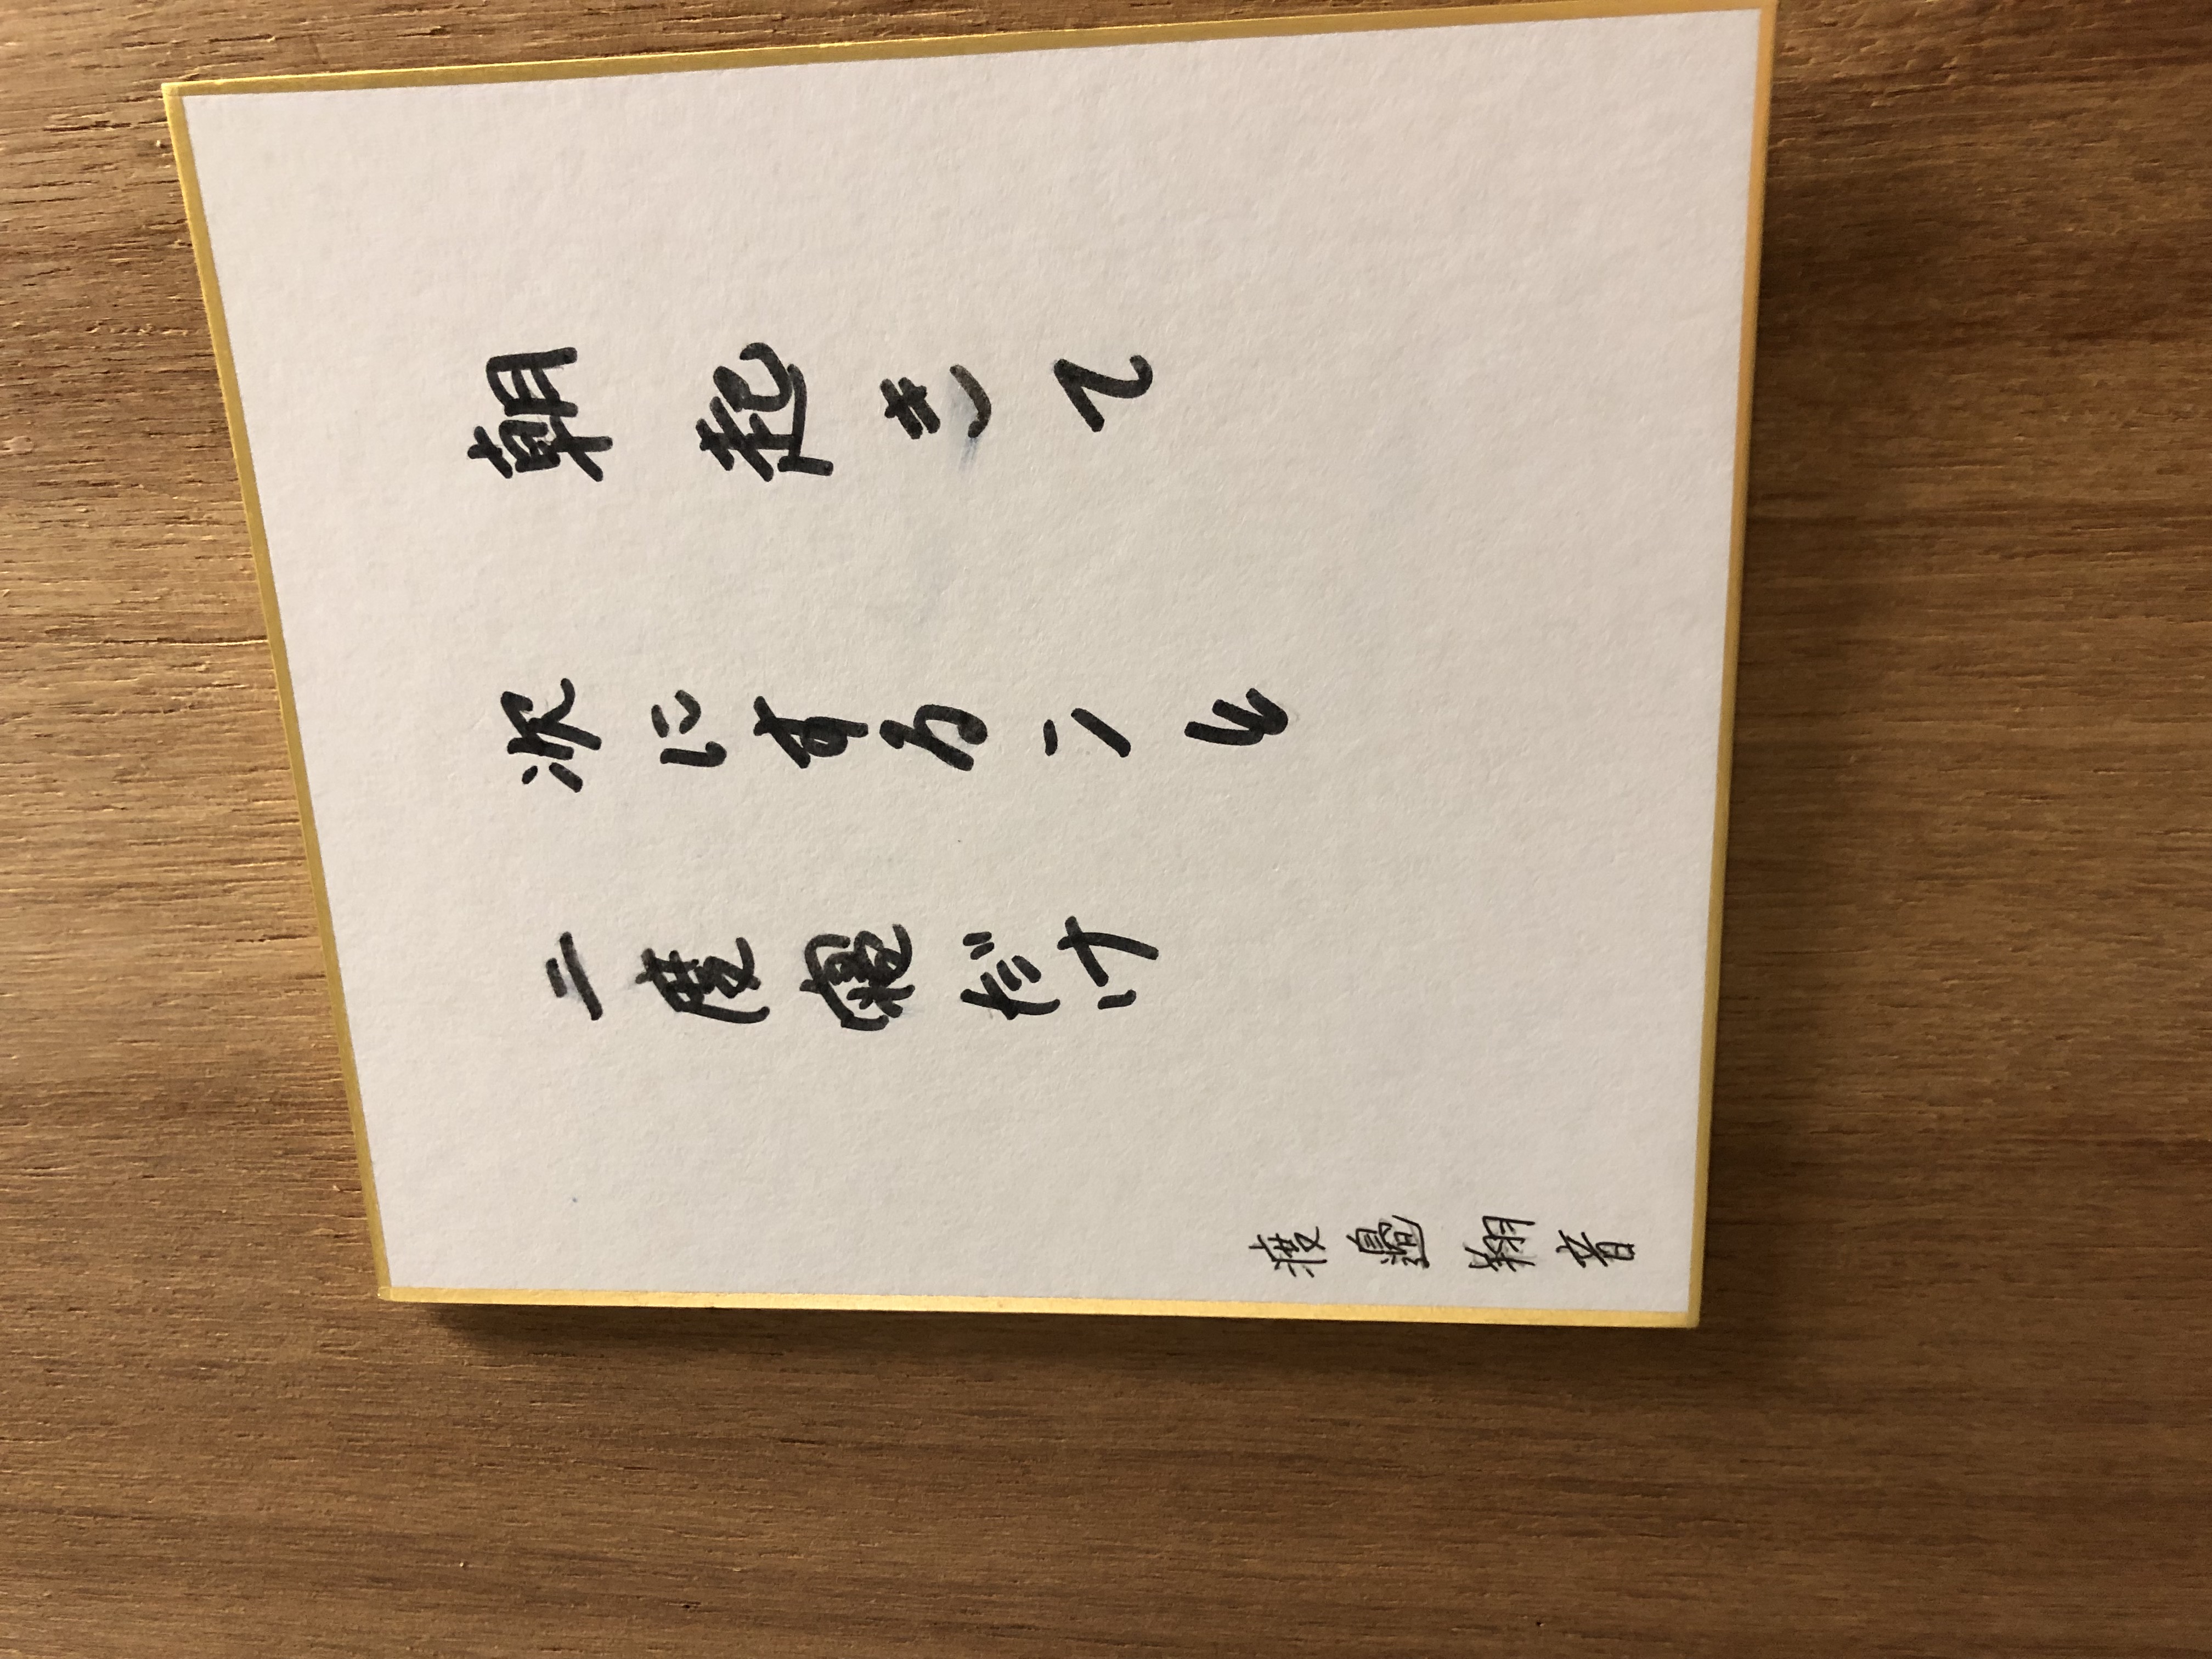 朝起きて
次にすること
二度寝だけ
渡邉翔音